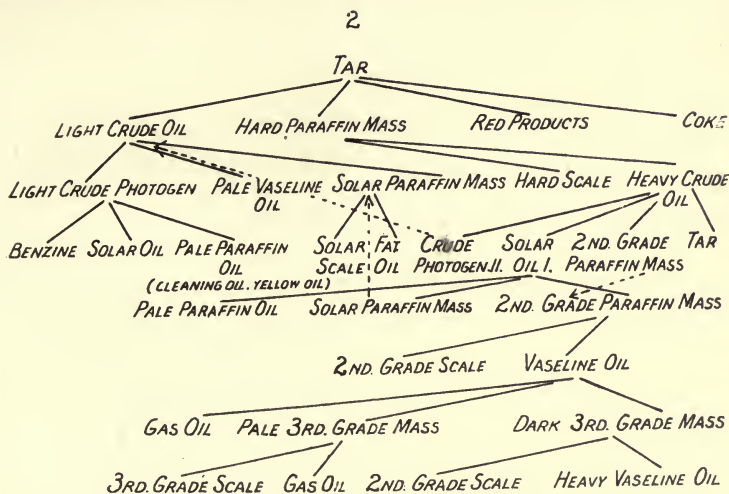 2
TAR
LIGHT CRUDE OIL HARD PARAFFIN MASS RED PRODUCTS COKE
LIGHT CRUDE PHOTOGEN PALE VASELINE OIL SOLAR PARAFFIN MASS HARD SCALE HEAVY CRUDE OIL
BENZINE SOLAR OIL PALE PARAFFIN OIL SOLAR SCALE FAT OIL CRUDE PHOTOGEN II. SOLAR OIL I. 2ND. GRADE PARAFFIN MASS TAR
(CLEANING OIL. YELLOW OIL)
PALE PARAFFIN OIL SOLAR PARAFFIN MASS 2ND. GRADE PARAFFIN MASS
2ND. GRADE SCALE VASELINE OIL
GAS OIL PALE 3RD. GRADE MASS DARK 3RD. GRADE MASS
3RD. GRADE SCALE GAS OIL 2ND. GRADE SCALE HEAVY VASELINE OIL